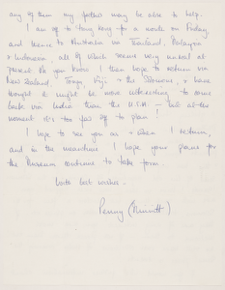 any of them my father may be able to help.
I am off to Hong Kong for a month on Friday
and thence to Australia via Thailand, Malaysia
& Indonesia, all of which seems very unreal at
present. As you know I then hope to return via
New Zealand, Tonga, Fiji & the Solomons, & have
thought it might be more interesting to come
back via India than the U.S.A. — but at the
moment it's too far off to plan!
I hope to see you as & when I return,
and in the meantime I hope your plans for
the Museum continue to take form.
With best wishes
Penny